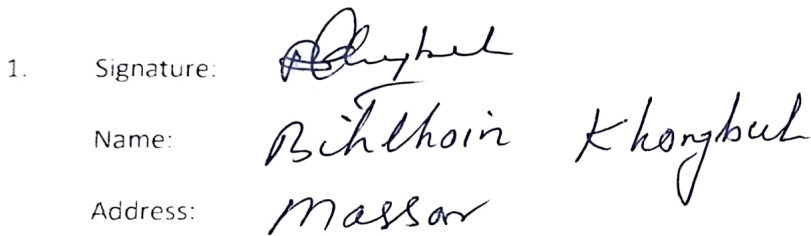 1. Signature:
Name: Bihlhoin Khongbuh
Address: Massar